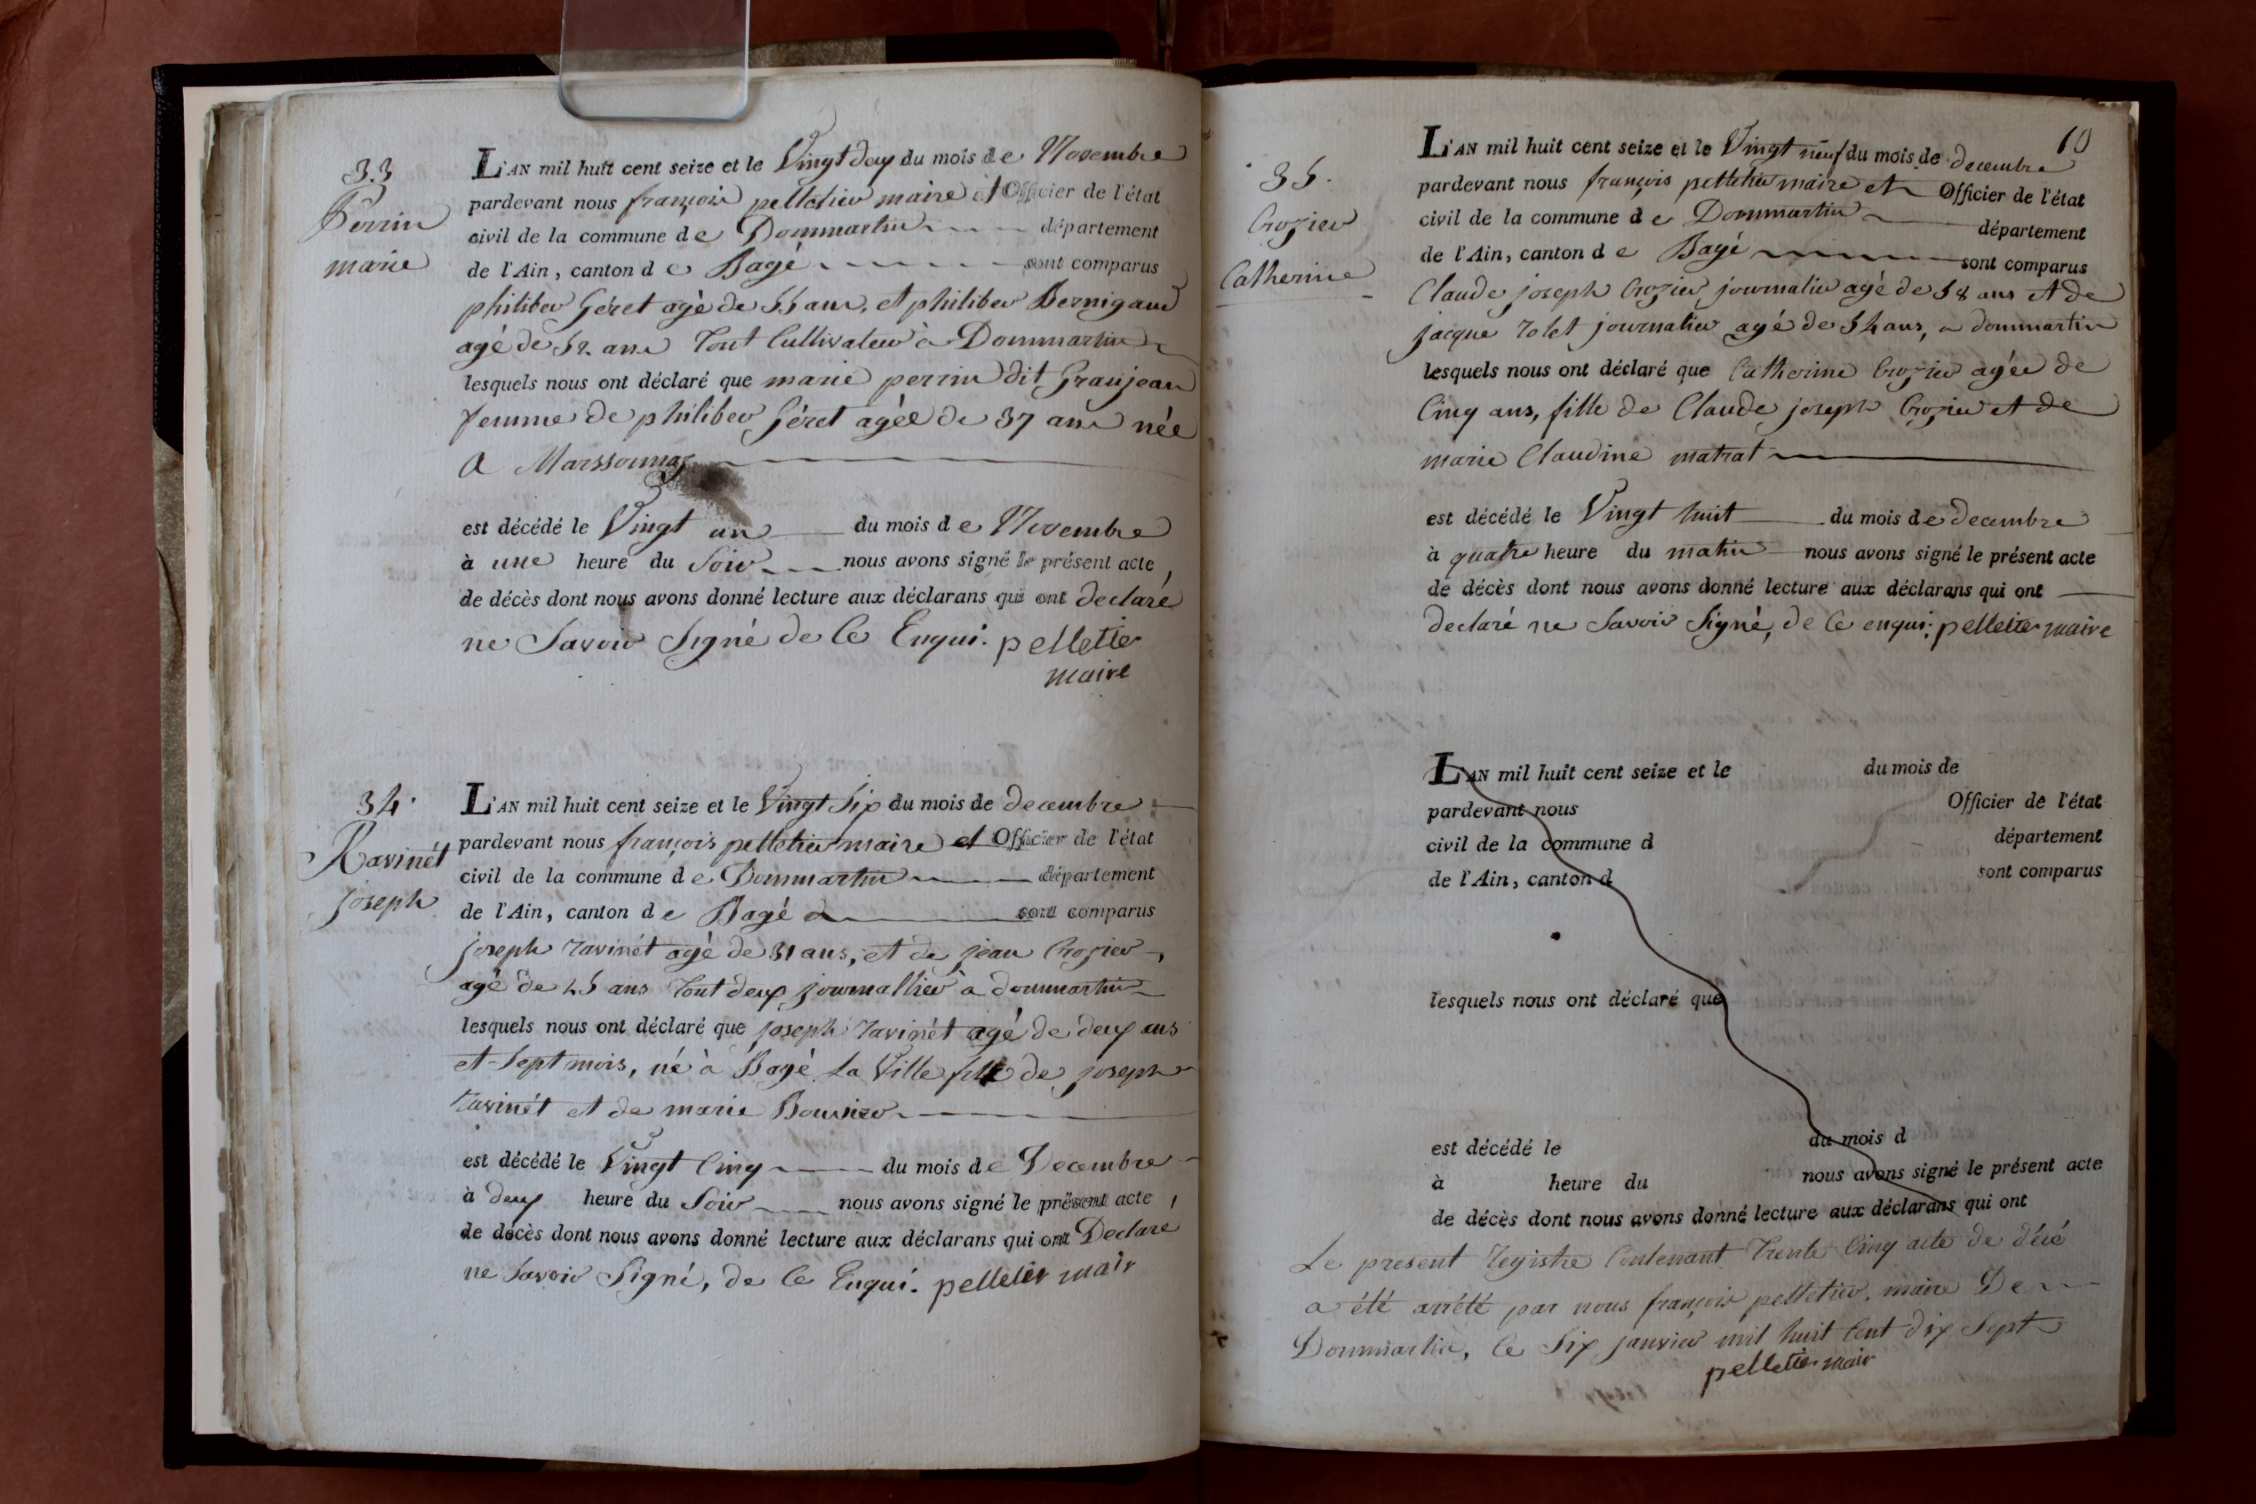 33
Perrin
marie
L'AN mil huit cent seize et le Vingt deux du mois de Novembre
pardevant nous françois pelletier maire et Officier de l'état
civil de la commune de Dommartin département
de l'Ain, canton de Bagé sont comparus
philiber Géret agé de 55 ans, et philiber Bernigaud
agé de 52 ans Tout Cultivateur à Dommartin
lesquels nous ont déclaré que marie perrin dit Granjean
femme de philiber Géret agée de 37 ans née
a Marssonnaz
est décédé le Vingt un du mois de Novembre
à une heure du Soir nous avons signé le présent acte,
de décès dont nous avons donné lecture aux déclarans qui ont declaré
ne Savoir Signé de Ce Enqui. pelletier
maire
34.
Ravinét
joseph
L'AN mil huit cent seize et le Vingt Six du mois de decembre
pardevant nous françois pelletier maire et Officier de l'état
civil de la commune de Dommartin département
de l'Ain, canton de Bagé sont comparus
joseph ravinét agé de 31 ans, et de jean Crozier,
agé de 25 ans Tout deux journallier a dommartin
lesquels nous ont déclaré que joseph ravinét agé de deux ans
et Sept mois, né à Bagé La Ville de joseph
ravinét et de marie
est décédé le Vingt Cinq du mois de Decembre
à deux heure du Soir nous avons signé le présent acte,
de décès dont nous avons donné lecture aux déclarans qui ont Declaré
ne Savoir Signé, de Ce Enqui. pelletier mair
10
35.
Crozier
Catherine
L'AN mil huit cent seize et le Vingt neuf du mois de decembre
pardevant nous françois pelletier maire et Officier de l'état
civil de la commune de Dommartin département
de l'Ain, canton de Bagé sont comparus
Claude joseph Crozier journalier agé de 38 ans et de
jacque rolet journalier agé de 54 ans, a dommartin
lesquels nous ont déclaré que Catherine Crozier agée de
Cinq ans, fille de Claude joseph Crozier et de
marie Claudine matrat
est décédé le Vingt huit du mois de decembre
à quatre heure du matin nous avons signé le présent acte
de décès dont nous avons donné lecture aux déclarans qui ont
declaré ne Savoir Signé, de Ce enqui. pelletier maire
L'AN mil huit cent seize et le du mois de
pardevant nous Officier de l'état
civil de la commune d département
de l'Ain, canton d sont comparus
lesquels nous ont déclaré que
est décédé le du mois d
à heure du nous avons signé le présent acte
de décès dont nous avons donné lecture aux déclarans qui ont
Le present registre Contenant Trente Cinq acte de décé
a été arrété par nous françois pelletier, maire De
Dommartin, Ce Six janvier mil huit Cent dix Sept
pelletier mair